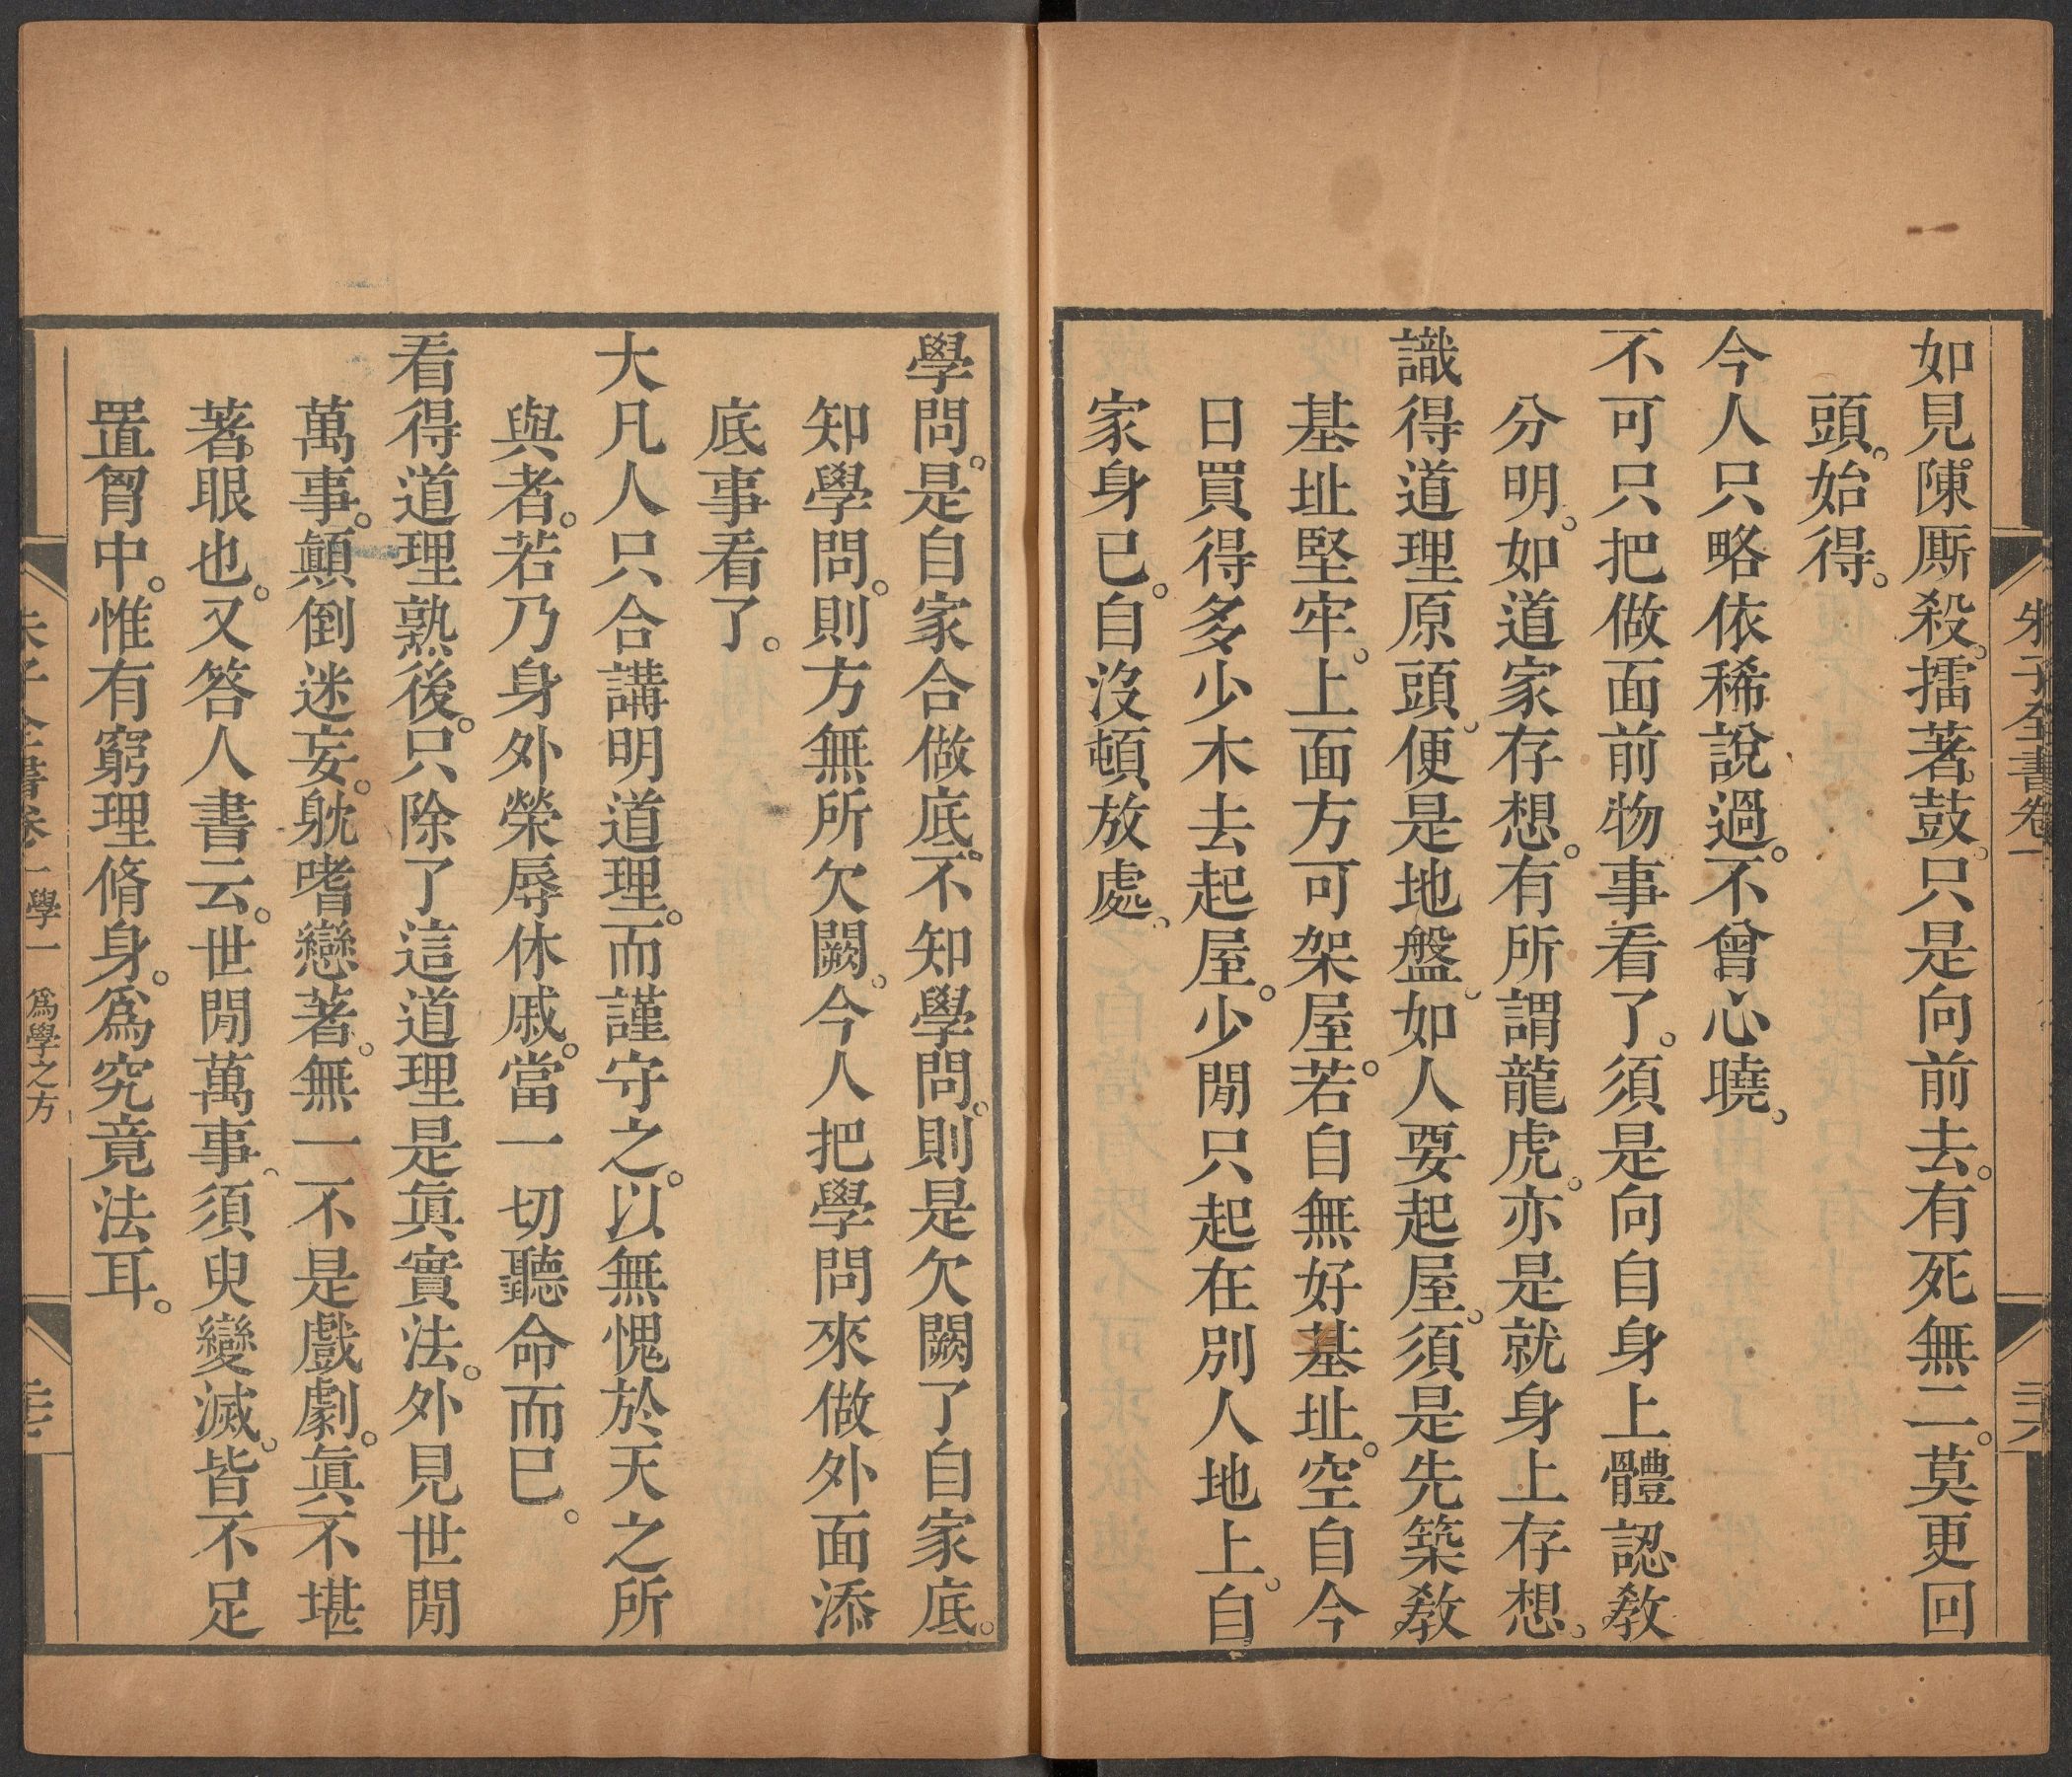 朱子全書卷一
二六
如見陳厮殺。擂著鼓。只是向前去。有死無二。莫更回
頭。始得。
今人只略依稀說過。不曾心曉。
不可只把做面前物事看了。須是向自身上體認教
分明。如道家存想。有所謂龍虎。亦是就身上存想。
識得道理原頭。便是地盤。如人要起屋。須是先築教
基址堅牢。上面方可架屋。若自無好基址。空自今
日買得多少木去起屋。少閒只起在別人地上。自
家身已。自沒頓放處。
學問。是自家合做底。不知學問。則是欠闕了自家底。
知學問。則方無所欠闕。今人把學問來做外面添
底事看了。
大凡人只合講明道理。而謹守之。以無愧於天之所
與者。若乃身外榮辱休戚。當一切聽命而已。
看得道理熟後。只除了這道理是眞實法。外見世閒
萬事。顛倒迷妄。躭嗜戀著。無一不是戲劇。眞不堪
著眼也。又答人書云。世閒萬事。須臾變滅。皆不足
置胷中。惟有窮理脩身。爲究竟法耳。
朱子全書卷一 學一 爲學之方